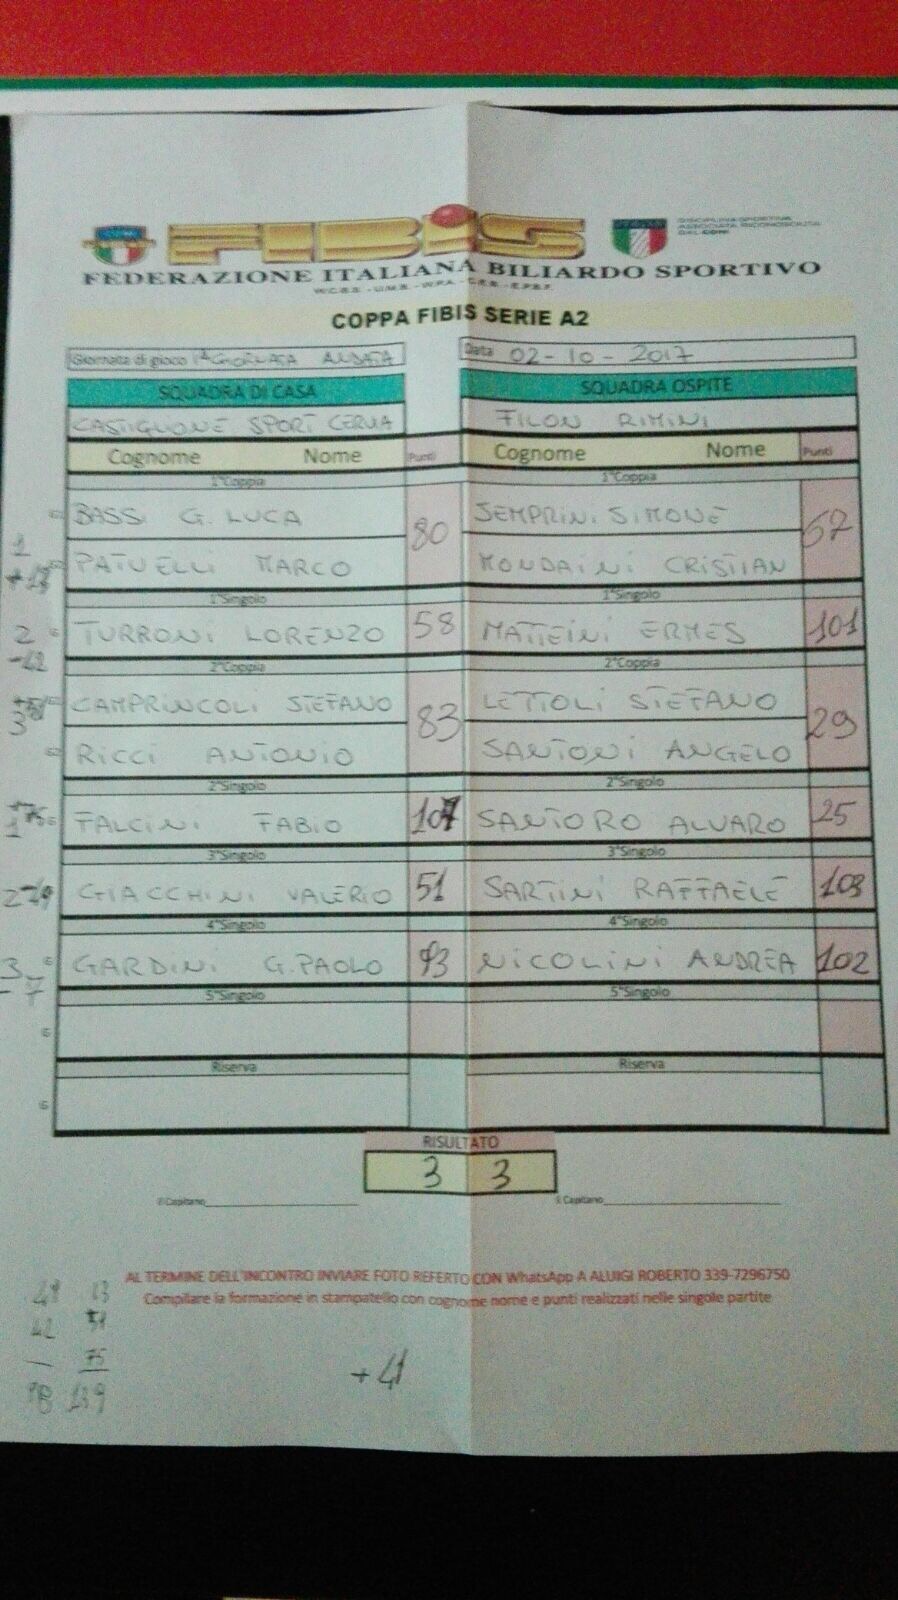 FIBIS
FEDERAZIONE ITALIANA BILIARDO SPORTIVO
DISCIPLINA SPORTIVA
ASSOCIATA RICONOSCIUTA
DAL CONI
COPPA FIBIS SERIE A2
Giornata di gioco 1ª GIORNATA ANDATA Data 02-10-2017
SQUADRA DI CASA SQUADRA OSPITE
CASTIGLIONE SPORT CERVIA FILON RIMINI
Cognome Nome Punti Cognome Nome Punti
1°Coppia 1°Coppia
BASSI G. LUCA 80 SEMPRINI SIMONE 67
PATUELLI MARCO MONDAINI CRISTIAN
1°Singolo 1°Singolo
TURRONI LORENZO 58 MATTEINI ERMES 101
2°Coppia 2°Coppia
CAMPRINCOLI STEFANO 83 LETTOLI STEFANO 29
RICCI ANTONIO SANTONI ANGELO
2°Singolo 2°Singolo
FALCINI FABIO 107 SANTORO ALVARO 25
3°Singolo 3°Singolo
GIACCHINI VALERIO 51 SARTINI RAFFAELE 103
4°Singolo 4°Singolo
GARDINI G.PAOLO 93 NICOLINI ANDREA 102
5°Singolo 5°Singolo
Riserva Riserva
RISULTATO
3 3
Il Capitano Il Capitano
AL TERMINE DELL'INCONTRO INVIARE FOTO REFERTO CON WhatsApp A ALUIGI ROBERTO 339-7296750
Compilare la formazione in stampatello con cognome nome e punti realizzati nelle singole partite
13
42
75
139
+41